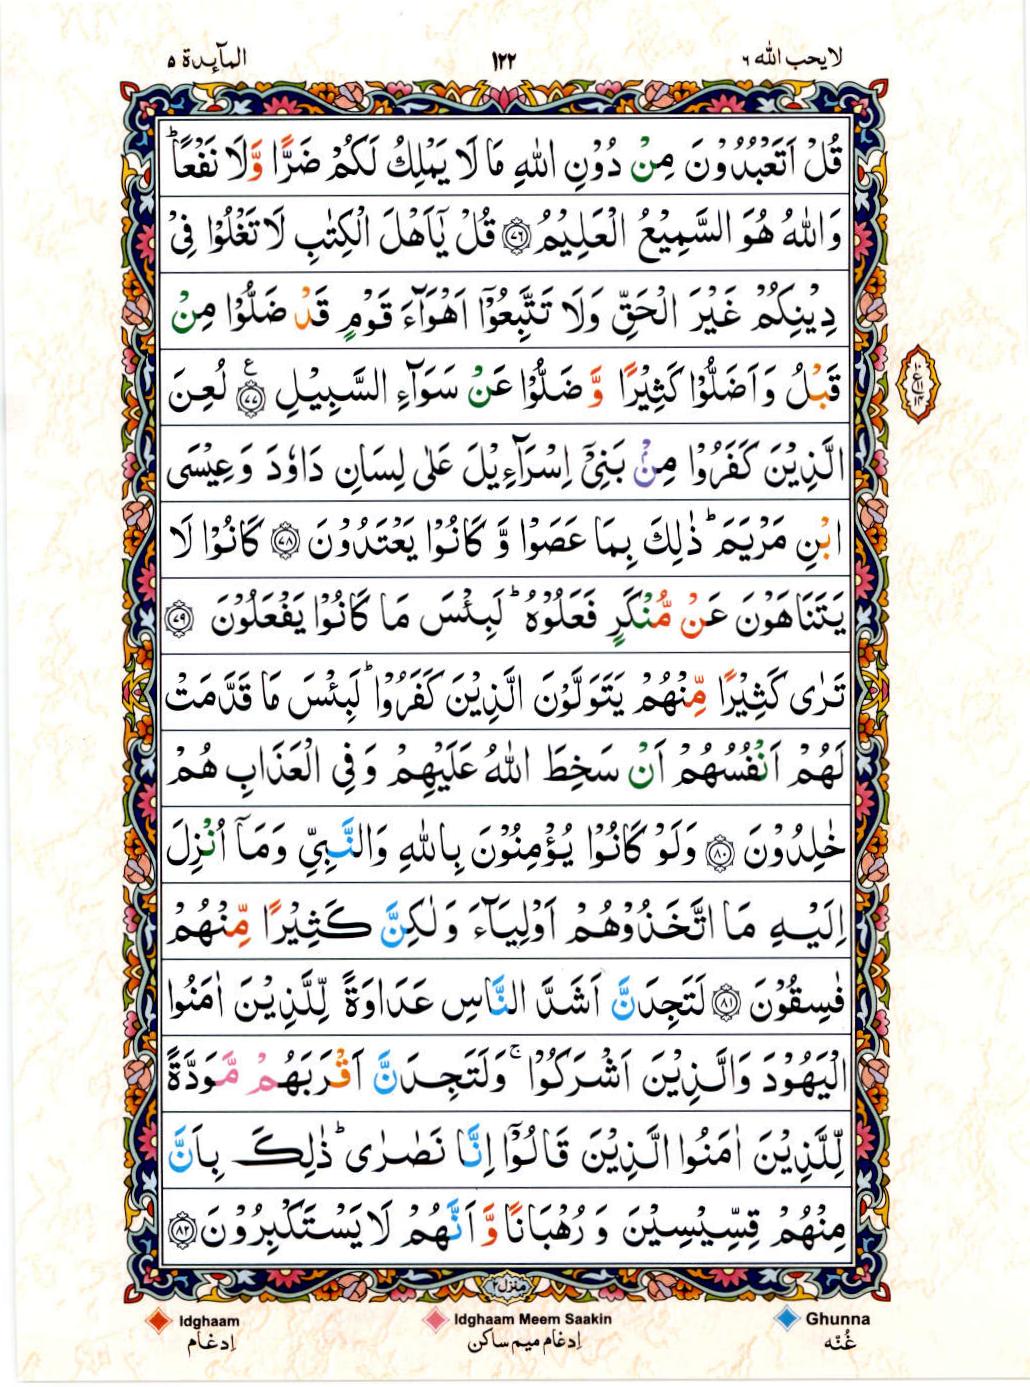 لا يحب الله ٦
١٢٢
المآىِٕدة ٥
قُلْ اَتَعْبُدُوْنَ مِنْ دُوْنِ اللّٰهِ مَا لَا يَمْلِكُ لَكُمْ ضَرًّا وَّلَا نَفْعًا ؕ
وَاللّٰهُ هُوَ السَّمِيْعُ الْعَلِيْمُ ﴿۷۶﴾ قُلْ يٰۤاَهْلَ الْكِتٰبِ لَا تَغْلُوْا فِيْ
دِيْنِكُمْ غَيْرَ الْحَقِّ وَلَا تَتَّبِعُوْۤا اَهْوَآءَ قَوْمٍ قَدْ ضَلُّوْا مِنْ
قَبْلُ وَاَضَلُّوْا كَثِيْرًا وَّ ضَلُّوْا عَنْ سَوَآءِ السَّبِيْلِ ﴿۷۷﴾ ع لُعِنَ
الَّذِيْنَ كَفَرُوْا مِنْۢ بَنِيْۤ اِسْرَآءِيْلَ عَلٰى لِسَانِ دَاوٗدَ وَعِيْسَى
ابْنِ مَرْيَمَ ؕ ذٰلِكَ بِمَا عَصَوْا وَّ كَانُوْا يَعْتَدُوْنَ ﴿۷۸﴾ كَانُوْا لَا
يَتَنَاهَوْنَ عَنْ مُّنْكَرٍ فَعَلُوْهُ ؕ لَبِئْسَ مَا كَانُوْا يَفْعَلُوْنَ ﴿۷۹﴾
تَرٰى كَثِيْرًا مِّنْهُمْ يَتَوَلَّوْنَ الَّذِيْنَ كَفَرُوْا ؕ لَبِئْسَ مَا قَدَّمَتْ
لَهُمْ اَنْفُسُهُمْ اَنْ سَخِطَ اللّٰهُ عَلَيْهِمْ وَفِي الْعَذَابِ هُمْ
خٰلِدُوْنَ ﴿۸۰﴾ وَلَوْ كَانُوْا يُؤْمِنُوْنَ بِاللّٰهِ وَالنَّبِيِّ وَمَاۤ اُنْزِلَ
اِلَيْهِ مَا اتَّخَذُوْهُمْ اَوْلِيَآءَ وَلٰكِنَّ كَثِيْرًا مِّنْهُمْ
فٰسِقُوْنَ ﴿۸۱﴾ لَتَجِدَنَّ اَشَدَّ النَّاسِ عَدَاوَةً لِّلَّذِيْنَ اٰمَنُوا
الْيَهُوْدَ وَالَّذِيْنَ اَشْرَكُوْا ۚ وَلَتَجِدَنَّ اَقْرَبَهُمْ مَّوَدَّةً
لِّلَّذِيْنَ اٰمَنُوا الَّذِيْنَ قَالُوْۤا اِنَّا نَصٰرٰى ؕ ذٰلِكَ بِاَنَّ
مِنْهُمْ قِسِّيْسِيْنَ وَ رُهْبَانًا وَّ اَنَّهُمْ لَا يَسْتَكْبِرُوْنَ ﴿۸۲﴾
منزل ٢
Idghaam
Idghaam Meem Saakin
Ghunna
اِدغَام
اِدغام میم ساکن
غُنّه